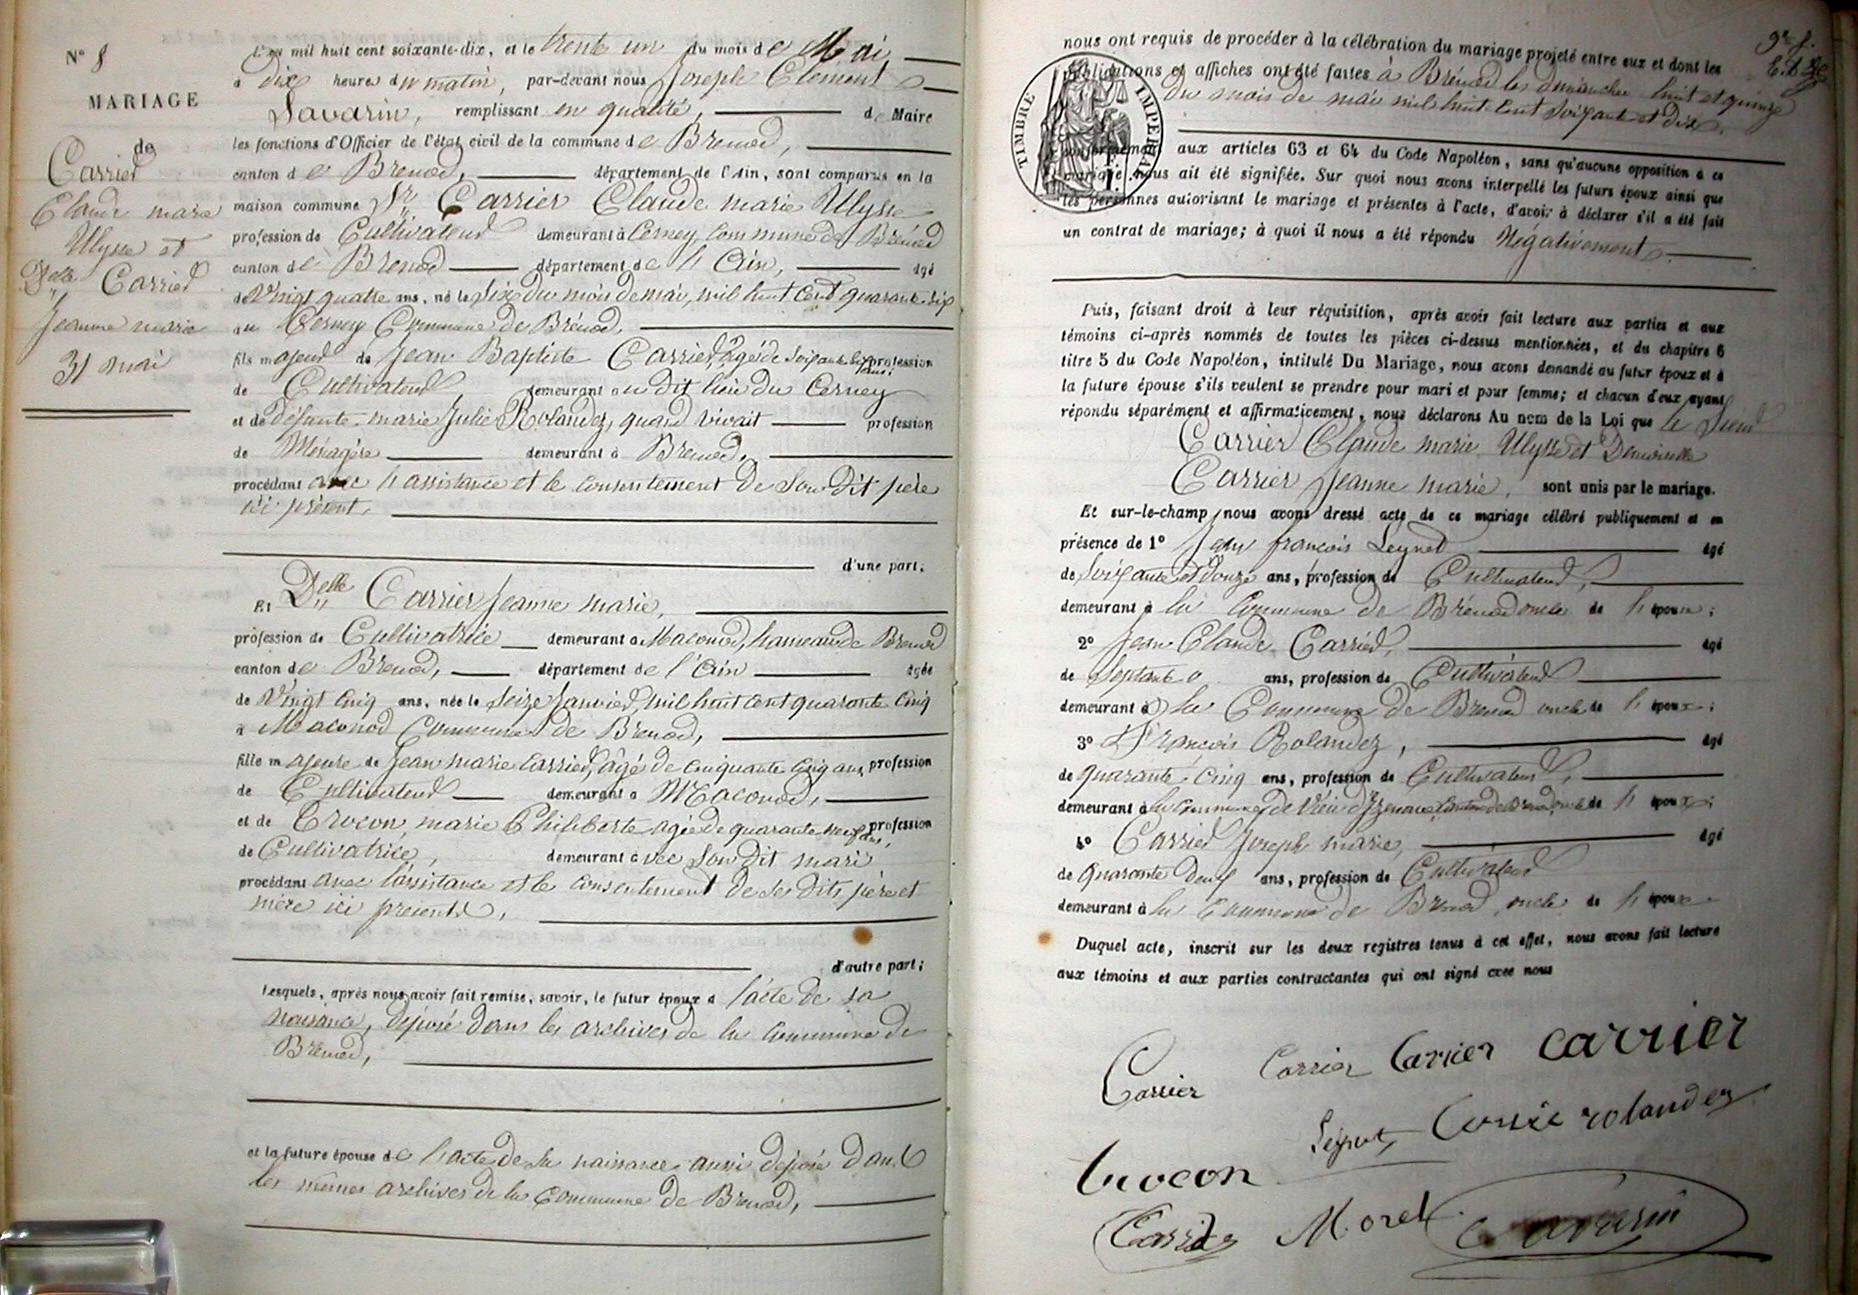 N° 8
MARIAGE
de
Carrier
Claude marie
Ulysse et
Delle Carrier
Jeanne marie
31 mai
L'an mil huit cent soixante-dix, et le trente un du mois de Mai
à dix heures du matin, par-devant nous Joseph Clément
Savarin, remplissant en qualité, de Maire
les fonctions d'Officier de l'état civil de la commune de Brenod,
canton de Brenod, département de l'Ain, sont comparus en la
maison commune Sr Carrier Claude marie Ulysse
profession de Cultivateur demeurant à Cerney, Commune de Brénod
canton de Brenod département de l'Ain, âgé
de Vingt quatre ans, né le six du mois de mai, mil huit cent quarante six
au Cerney Commune de Brénod,
fils majeur de Jean Baptiste Carrier, âgé de soixante ans, profession
de Cultivateur demeurant au dit lieu du Cerney
et de défunte marie Julie Rolandez, quand vivait profession
de Ménagère demeurant à Brenod,
procédant avec l'assistance et le consentement de son dit père
ici présent,
d'une part;
Et Delle Carrier Jeanne marie,
profession de Cultivatrice demeurant à Maconod, hameau de Brenod
canton de Brenod, département de l'Ain âgée
de Vingt cinq ans, née le seize Janvier, mil huit cent quarante cinq
à Maconod Commune de Brenod,
fille majeure de Jean marie Carrier, âgé de cinquante cinq ans, profession
de Cultivateur demeurant à Maconod,
et de Crocon marie Philiberte agée de quarante neuf ans, profession
de Cultivatrice, demeurant avec son dit mari
procédant avec l'assistance et le consentement de ses dits père et
mère ici présents,
d'autre part;
Lesquels, après nous avoir fait remise, savoir, le futur époux d l'acte de sa
naissance, déposé dans les archives de la commune de
Brenod,
et la future épouse de l'acte de sa naissance, aussi déposé dans
les mêmes archives de la Commune de Brenod,
nous ont requis de procéder à la célébration du mariage projeté entre eux et dont les
publications et affiches ont été faites à Brénod les dimanches huit et quinze
du mois de mai mil huit cent soixante et dix.
TIMBRE IMPÉRIAL
conformément aux articles 63 et 64 du Code Napoléon, sans qu'aucune opposition à ce
mariage nous ait été signifiée. Sur quoi nous avons interpellé les futurs époux ainsi que
les personnes autorisant le mariage et présentes à l'acte, d'avoir à déclarer s'il a été fait
un contrat de mariage; à quoi il nous a été répondu Négativement.
Puis, faisant droit à leur réquisition, après avoir fait lecture aux parties et aux
témoins ci-après nommés de toutes les pièces ci-dessus mentionnées, et du chapitre 6
titre 5 du Code Napoléon, intitulé Du Mariage, nous avons demandé au futur époux et à
la future épouse s'ils veulent se prendre pour mari et pour femme; et chacun d'eux ayant
répondu séparément et affirmativement, nous déclarons Au nom de la Loi que le Sieur
Carrier Claude marie Ulysse et Demoiselle
Carrier Jeanne marie, sont unis par le mariage.
Et sur-le-champ nous avons dressé acte de ce mariage célébré publiquement et en
présence de 1° Jean françois Leynet âgé
de soixante et douze ans, profession de Cultivateur,
demeurant à la Commune de Brénod oncle de l'époux;
2° Jean Claude Carrier, âgé
de Septante ans, profession de Cultivateur
demeurant à la Commune de Brenod oncle de l'époux;
3° François Rolandez, âgé
de quarante cinq ans, profession de Cultivateur,
demeurant à la Commune de Vieu d'Izenave, Canton de Brenod, oncle de l'époux;
4° Carrier Joseph marie, âgé
de quarante neuf ans, profession de Cultivateur
demeurant à la Commune de Brenod, oncle de l'époux
Duquel acte, inscrit sur les deux registres tenus à cet effet, nous avons fait lecture
aux témoins et aux parties contractantes qui ont signé avec nous
Carrier Carrier Carrier Carrier
Leynet Carrier rolandez
Crocon
Carrier Morel Savarin